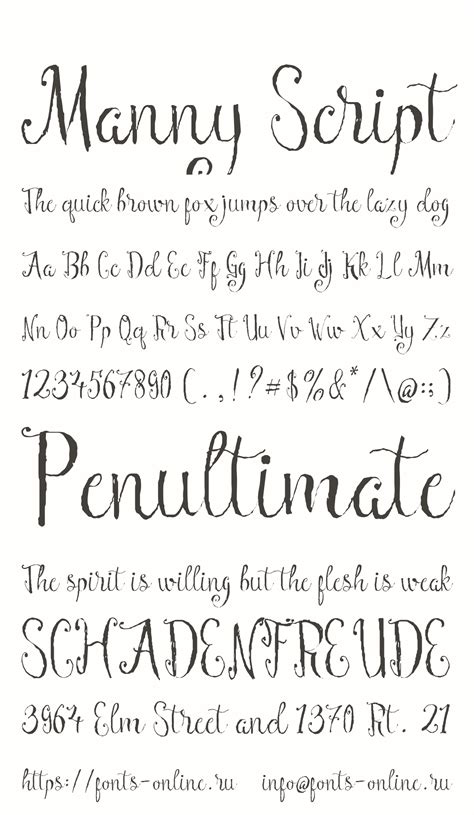 Manny Script
The quick brown fox jumps over the lazy dog
Aa Bb Cc Dd Ee Ff Gg Hh Ii Jj Kk Ll Mm
Nn Oo Pp Qq Rr Ss Tt Uu Vv Ww Xx Yy Zz
1234567890 (.,!?#$%&*/\@:;)
Penultimate
The spirit is willing but the flesh is weak
SCHADENFREUDE
3964 Elm Street and 1370 Rt. 21
https://fonts-online.ru info@fonts-online.ru